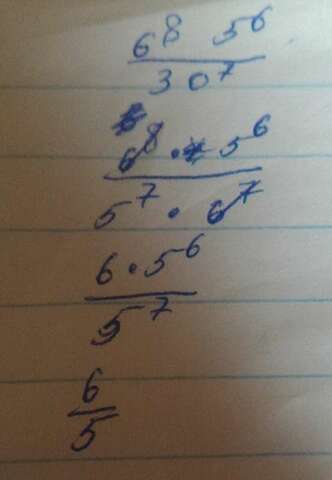 6⁸ 5⁶
30⁷
6⁸ · 5⁶
5⁷ · 6⁷
6 · 5⁶
5⁷
6
5